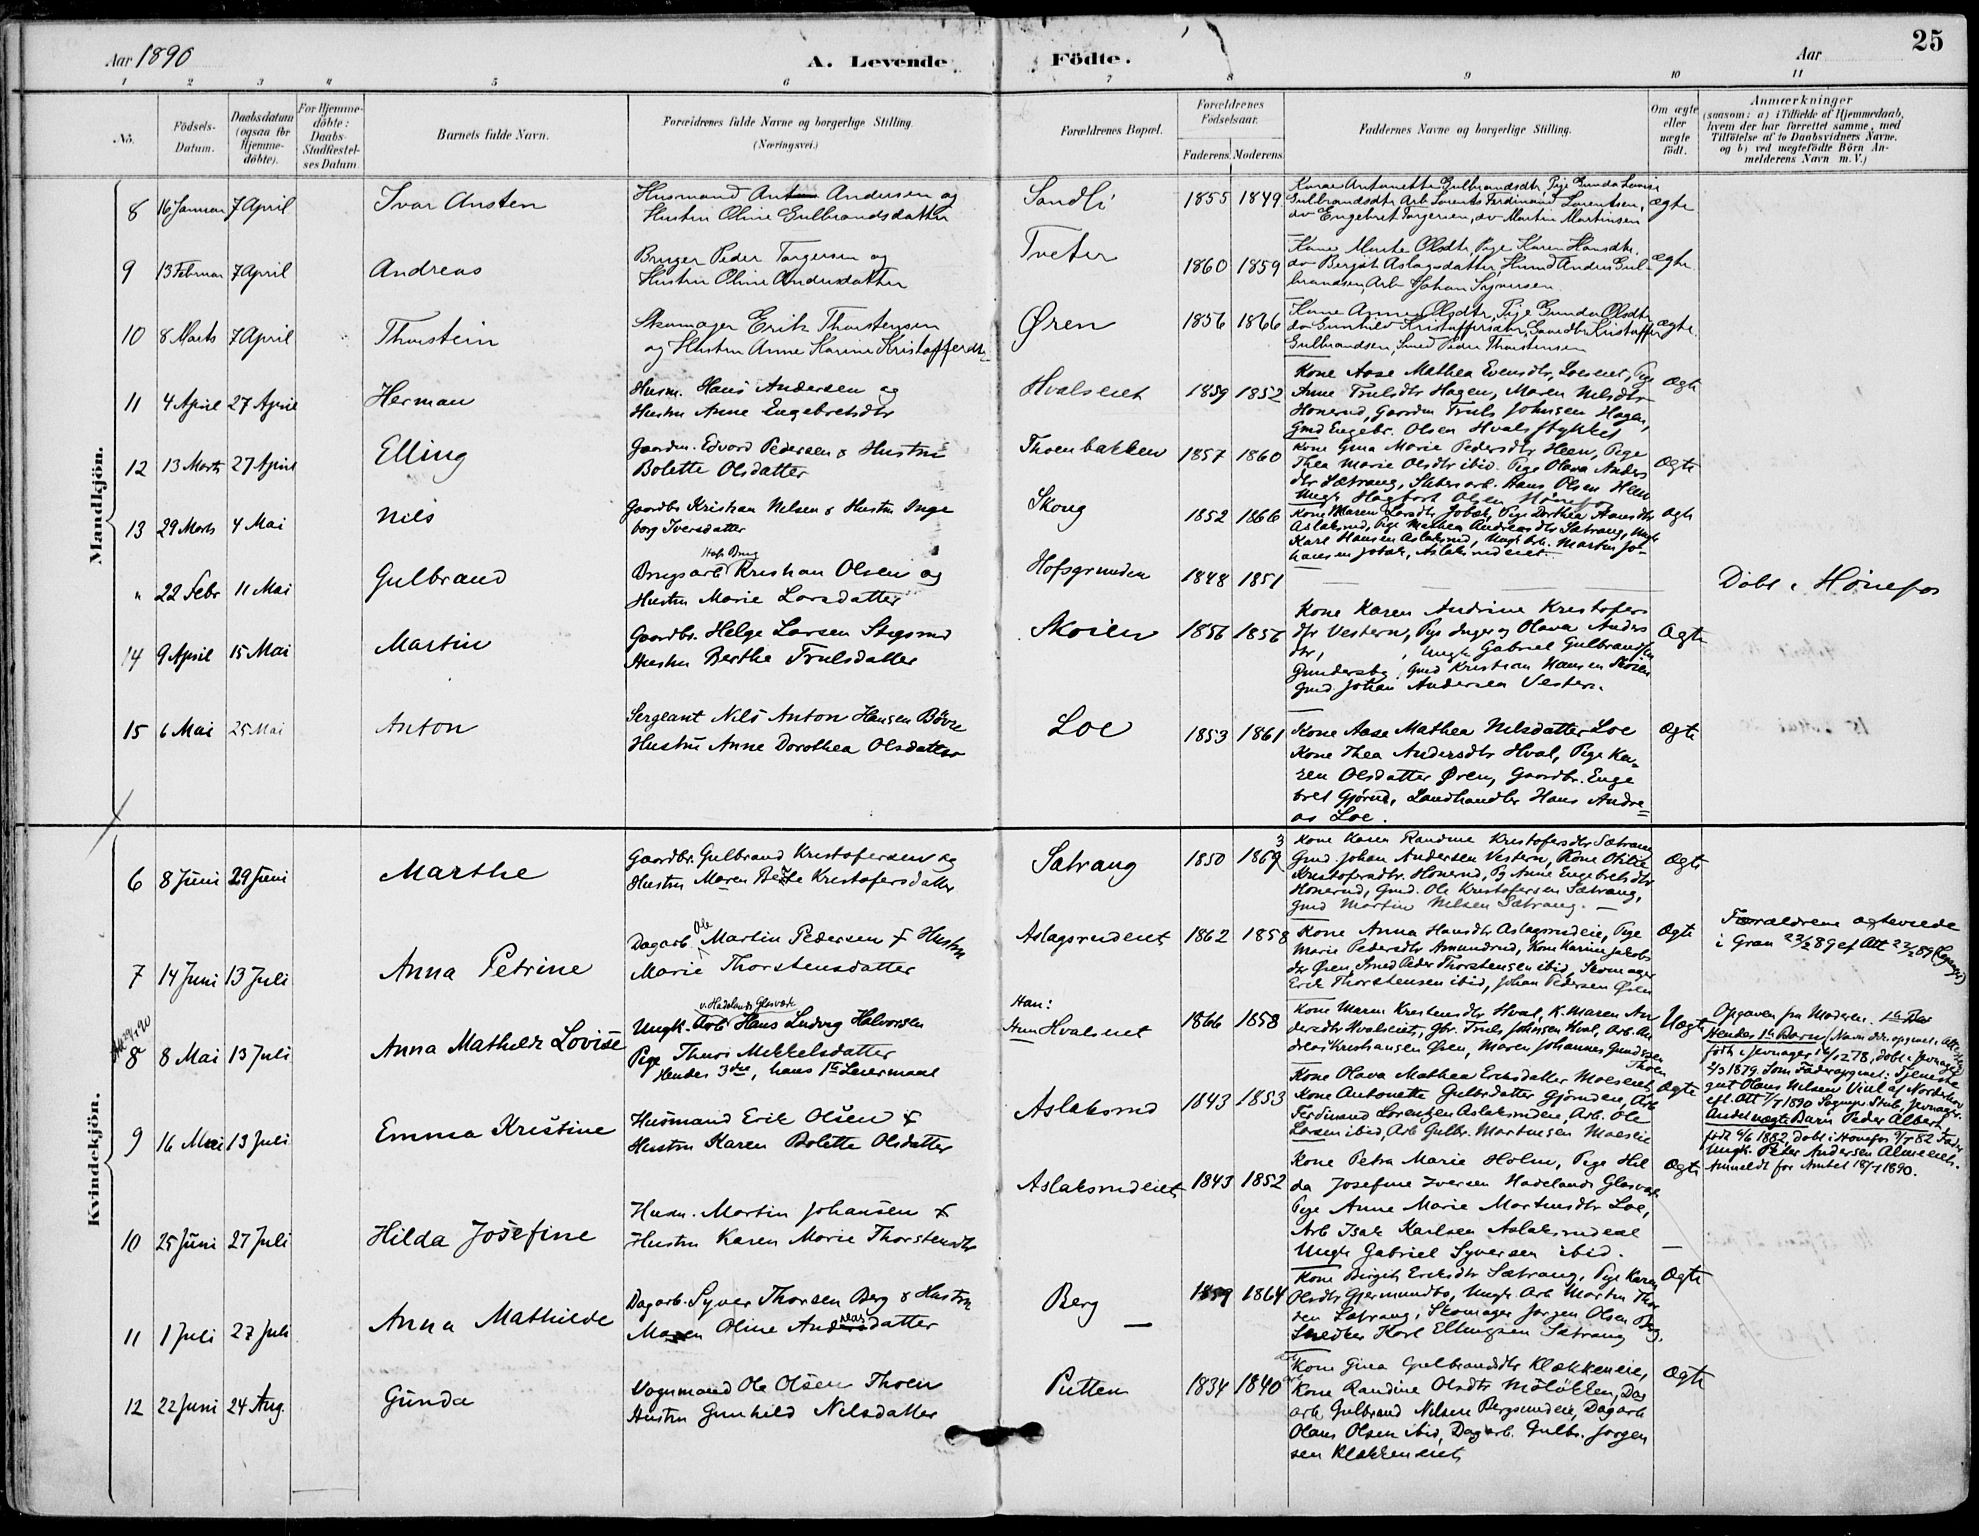 Aar 1890
A. Levende
Födte.
Aar
25
1 2 3 4 5 6 7 8 9 10 11
No.
Födsels-Datum.
Daabsdatum (ogsaa for Hjemme-döbte).
For Hjemme-döbte: Daabs-Stadfestel-ses Datum.
Barnets fulde Navn.
Forældrenes fulde Navne og borgerlige Stilling. (Næringsvei.)
Forældrenes Bopæl.
Forældrenes Födselsaar.
Faderens. Moderens.
Faddernes Navne og borgerlige Stilling.
Om ægte eller uægte født.
Anmærkninger
(saasom: a) i Tilfælde af Hjemmedaab,
hvem der har forrettet samme, med
Tilföielse af to Daabsvidners Navne.
og b) ved uægtefödte Börn An-
melderens Navn m. V.)
Mandkjön.
8 16 Januar 7 April Ivar Ansten
Husmand Anton Andersen og
Hustru Oline Gulbrandsdatter
Sandli 1855 1849
Kone Antonette Gulbrandsdtr, Pige Gunda Lovise
Gulbrandsdtr Arb Lorents Ferdinand Lorentsen,
do Engebret Torgersen, do Martin Martinsen
ægte
9 13 Februar 7 April Andreas
Bruger Peder Torgersen og
Hustru Oline Andersdatter
Tveter 1860 1859
Kone Marte Olsdtr, Pige Karen Hansdtr,
do Bergit Aslagsdatter, Husmd Anders Gul-
brandsen, Arb Johan Syversen
ægte
10 8 Marts 7 April Thorstein
Skomager Erik Thorstensen
og Hustru Anne Karine Kristoffersdtr
Øren 1856 1866
Kone Anne Olsdtr, Pige Gunda Olsdtr
do Gunhild Kristoffersdtr, Gaardbr Kristoffer
Gulbrandsen, Smed Peder Thorstensen
ægte
11 4 April 27 April Herman
Husm. Hans Andersen og
Hustru Anne Engebretsdtr
Hvalseiet 1859 1852
Kone Aase Mathea Evensdtr, Loeseiet, Pige
Anne Trulsdtr Hagen, Maren Nelsdtr
Honerud, Gaardm Truls Johnsen Hagen,
Gmd Engebr. Olsen Hvalsstykket
ægte
12 13 Marts 27 April Elling
Gaardm. Edvard Pedersen & Hustru
Bolette Olsdatter
Thoenbakken 1857 1860
Kone Gina Marie Pedersdtr Heen, Pige
Thea Marie Olsdtr ibid. Pige Olava Anders
dtr Sætrang, Sliberarb. Hans Olsen Heen
Ungk Hagbart Olsen Hønefos
Ægte
13 29 Marts 4 Mai Nils
Gaardbr Kristian Nelsen & Hustru Inge
borg Iversdatter
Skoug 1852 1866
Kone Maren Larsdtr Jobak, Pige Dorthea Hansdtr
Aslaksrud, Pige Mathea Andreasdtr Sætrang, Ungk
Karl Hansen Aslaksrud, Ungk Arb. Marten Jo-
hansen Jobak, Aslaksrudeiet
ægte
" 22 Febr 11 Mai Gulbrand
Hofs Brug
Brugsarb Kristian Olsen og
Hustru Marie Larsdatter
Hofsgrunden 1848 1851
Döbt i Hønefos
14 9 April 15 Mai Martin
Gaardbr. Helge Larsen Stegsrud
Hustru Berthe Trulsdatter
Skoien 1856 1856
Kone Karen Andrine Kristofers
dtr Vestern, Pige Inger og Olava Anders
dtr, Ungk Gabriel Gulbrandsen
Gundersby, Gmd Kristian Hansen Skoien
Gmd. Johan Andersen Vestern.
Ægte
15 6 Mai 25 Mai Anton
Sergeant Nils Anton Hansen Bövre
Hustru Anne Dorothea Olsdatter
Loe 1853 1861
Kone Aase Mathea Nelsdatter Loe
Kone Thea Andersdtr Hval, Pige Ka-
ren Olsdatter Øren, Gaardbr. Enge
bret Gjörud, Landhandler Hans Andre-
as Loe.
Ægte
Kvindekjön.
6 8 Juni 29 Juni Marthe
Gaardbr. Gulbrand Kristofersen og
Hustru Maren Beate Kristofersdatter
Satrang 1850 1869 3
Kone Karen Randine Kristofersdtr Sætrang
Gmd. Johan Andersen Vestern, Kone Otilie
Kristofersdtr. Honerud, Pg Anne Engebretsdtr
Honerud, Gmd. Ole Kristofersen Sætrang,
Gmd Martin Nelsen Sætrang. —
Ægte
7 14 Juni 13 Juli Anna Petrine
Dagarb Ole Martin Pedersen & Hustru
Marie Thorstensdatter
Aslagsrudeiet 1862 1858
Kone Anna Hansdtr Aslagsrudeie, Pige
Marie Pedersdtr Amundrud, Kone Karine Jakobs
dtr Øren, Smed Peder Thorstensen ibid, Skomager
Erik Thorstensen ibid, Johan Pedersen Øren
Ægte
Forældrene ægteviede
i Gran 23/2 89 ef. Att 22/7 89
8 8 Mai 13 Juli Anna Mathilde Lovise
v. Hadelands Glasværk
Ungk. Arb Hans Ludvig Halvorsen
Pige Thuri Mikkelsdatter
Hendes 3die, hans 1ste Leiermaal
Han:
Hun Hvalseiet 1866 1858
Kone Maren Kristensdtr Hval, K. Maren An
dersdtr Hvalseiet, Gbr. Truls Johnsen Hval, Arb. An
dreas Kristiansen Øren, Maren Johannes Gundersen
Thoen
Uægte
Opgaven fra Moderen.
Hendes 1ste Barn
født i Jevnager 14/12 78, döbt i Jevnager
2/3 1879. Som Fader opgivet: Tjeneste
gut Olaus Nilsen Viul af Norderhov
efl. Att 7/7 1890 Sognepr. Stub, Jevnager.
Andet uægte Barn Peder Albert
født 4/6 1882, döbt i Honefos 9/7 82 Fader
Ungk. Peter Andersen Almeeiet.
Anmeldt for Amtet 18/7 1890.
9 16 Mai 13 Juli Emma Kristine
Husmand Erik Olsen &
Hustru Karen Bolette Olsdatter
Aslaksrud 1843 1853
Kone Olava Mathea Eriksdatter Moeseiet,
Kone Antonette Gulbrsdatter Gjörudeie, Arb
Ferdinand Lorentzen Aslaksrudeie, Arb. Ole
Larsen ibid, Arb Gulbr. Martinsen Moeseie
Ægte
10 25 Juni 27 Juli Hilda Josefine
Husm. Martin Johansen &
Hustru Karen Marie Thorstensdtr
Aslaksrudeiet 1843 1852
Kone Petra Marie Holm, Pige Hil
da Josefine Iversen Hadelands Glasværk
Pige Anne Marie Martinsdtr Loe,
Arb Isak Karlsen Aslaksrudeiet
Ungk Gabriel Syversen ibid.
Ægte
11 1 Juli 27 Juli Anna Mathilde
Dagarb. Syver Thorsen Berg & Hustru
Maren Oline Andreasdatter
Berg 1859 1864
Kone Birgit Eriksdtr Sætrang, Pige Karen
Olsdtr Gjermundbo, Ungk Arb Martin Thor
sen Sætrang, Skomager Jørgen Olsen Berg,
Snedker Karl Ellingsen Sætrang
Ægte
12 22 Juni 24 Aug. Gunda
Vognmand Ole Olsen Thoen
Hustru Gunhild Nilsdatter
Putten 1834 1840
Kone Gina Gulbrandsdtr Klækkeneie,
Kone Randine Olsdtr Möløkken, Dag
arb Gulbrand Nilsen Bergsundeie, Dagarb
Olaus Olsen ibid, Dagarb. Gulbr. Jorgen
sen Klækkeneiet
Ægte